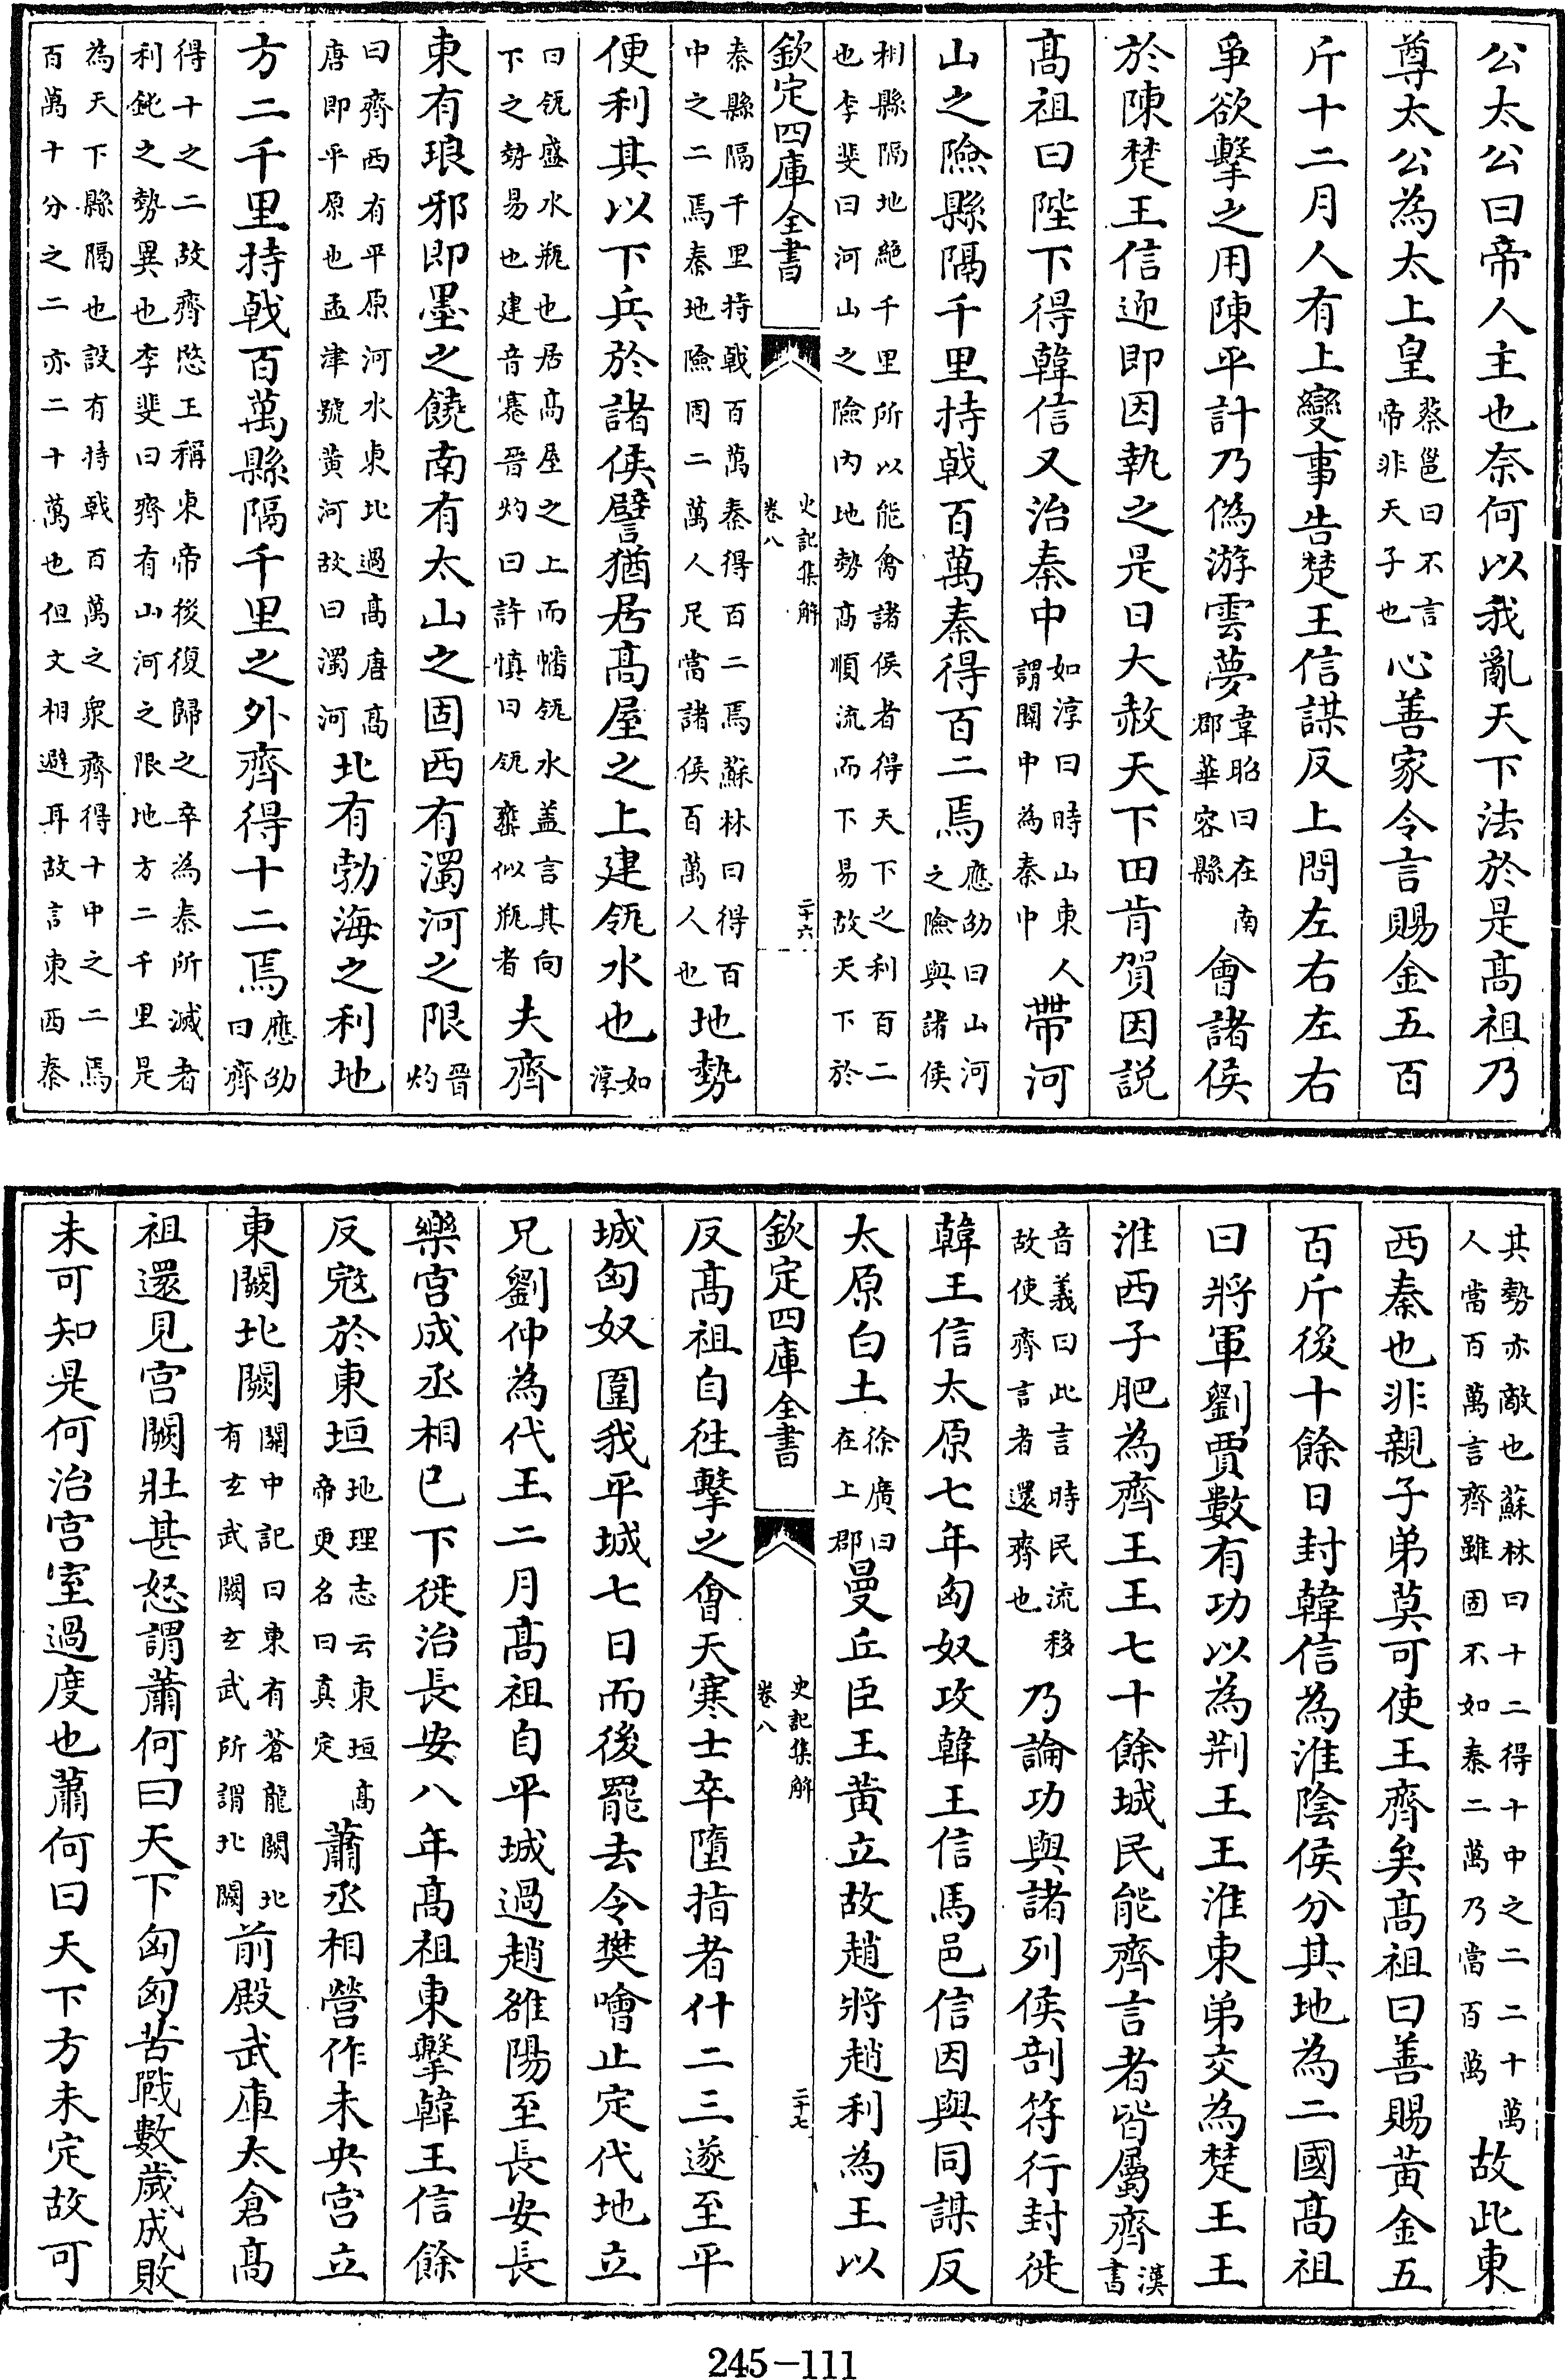 公太公曰帝人主也奈何以我亂天下法於是髙祖乃
尊太公為太上皇蔡邕曰不言帝非天子也心善家令言賜金五百
斤十二月人有上變事告楚王信謀反上問左右左右
爭欲擊之用陳平計乃偽游雲夢韋昭曰在南郡華容縣會諸侯
於陳楚王信迎即因執之是日大赦天下田肯賀因説
髙祖曰陛下得韓信又治秦中如淳曰時山東人謂關中為秦中帶河
山之險縣隔千里持戟百萬秦得百二焉應劭曰山河之險與諸侯
相縣隔地絶千里所以能禽諸侯者得天下之利百二也李斐曰河山之險内地勢髙順流而下易故天下於
欽定四庫全書
史記集解
卷八
二十六
秦縣隔千里持戟百萬秦得百二焉蘇林曰得百中之二焉秦地險固二萬人足當諸侯百萬人也地勢
便利其以下兵於諸侯譬猶居髙屋之上建瓴水也如淳
曰瓴盛水瓶也居髙屋之上而幡瓴水盖言其向下之勢易也建音蹇晉灼曰許慎曰瓴甕似瓶者夫齊
東有琅邪即墨之饒南有太山之固西有濁河之限晉灼
曰齊西有平原河水東北過髙唐髙唐即平原也孟津號黄河故曰濁河北有勃海之利地
方二千里持戟百萬縣隔千里之外齊得十二焉應劭曰齊
得十之二故齊愍王稱東帝後復歸之卒為秦所滅者利鈍之勢異也李斐曰齊有山河之限地方二千里是
為天下縣隔也設有持戟百萬之衆齊得十中之二焉百萬十分之二亦二十萬也但文相避耳故言東西秦
其勢亦敵也蘇林曰十二得十中之二二十萬人當百萬言齊雖固不如秦二萬乃當百萬故此東
西秦也非親子弟莫可使王齊矣髙祖曰善賜黃金五
百斤後十餘日封韓信為淮陰侯分其地為二國髙祖
曰將軍劉賈數有功以為荆王王淮東弟交為楚王王
淮西子肥為齊王王七十餘城民能齊言者皆屬齊漢書
音義曰此言時民流移故使齊言者還齊也乃論功與諸列侯剖符行封徙
韓王信太原七年匈奴攻韓王信馬邑信因與同謀反
太原白土徐廣曰在上郡曼丘臣王黄立故趙將趙利為王以
欽定四庫全書
史記集解
卷八
二十七
反髙祖自往擊之會天寒士卒墮指者什二三遂至平
城匈奴圍我平城七日而後罷去令樊噲止定代地立
兄劉仲為代王二月髙祖自平城過趙雒陽至長安長
樂宮成丞相已下徙治長安八年髙祖東擊韓王信餘
反寇於東垣地理志云東垣髙帝更名曰真定蕭丞相營作未央宮立
東闕北闕關中記曰東有蒼龍闕北有玄武闕玄武所謂北闕前殿武庫太倉髙
祖還見宮闕壯甚怒謂蕭何曰天下匈匈苦戰數歲成敗
未可知是何治宮室過度也蕭何曰天下方未定故可
245-111